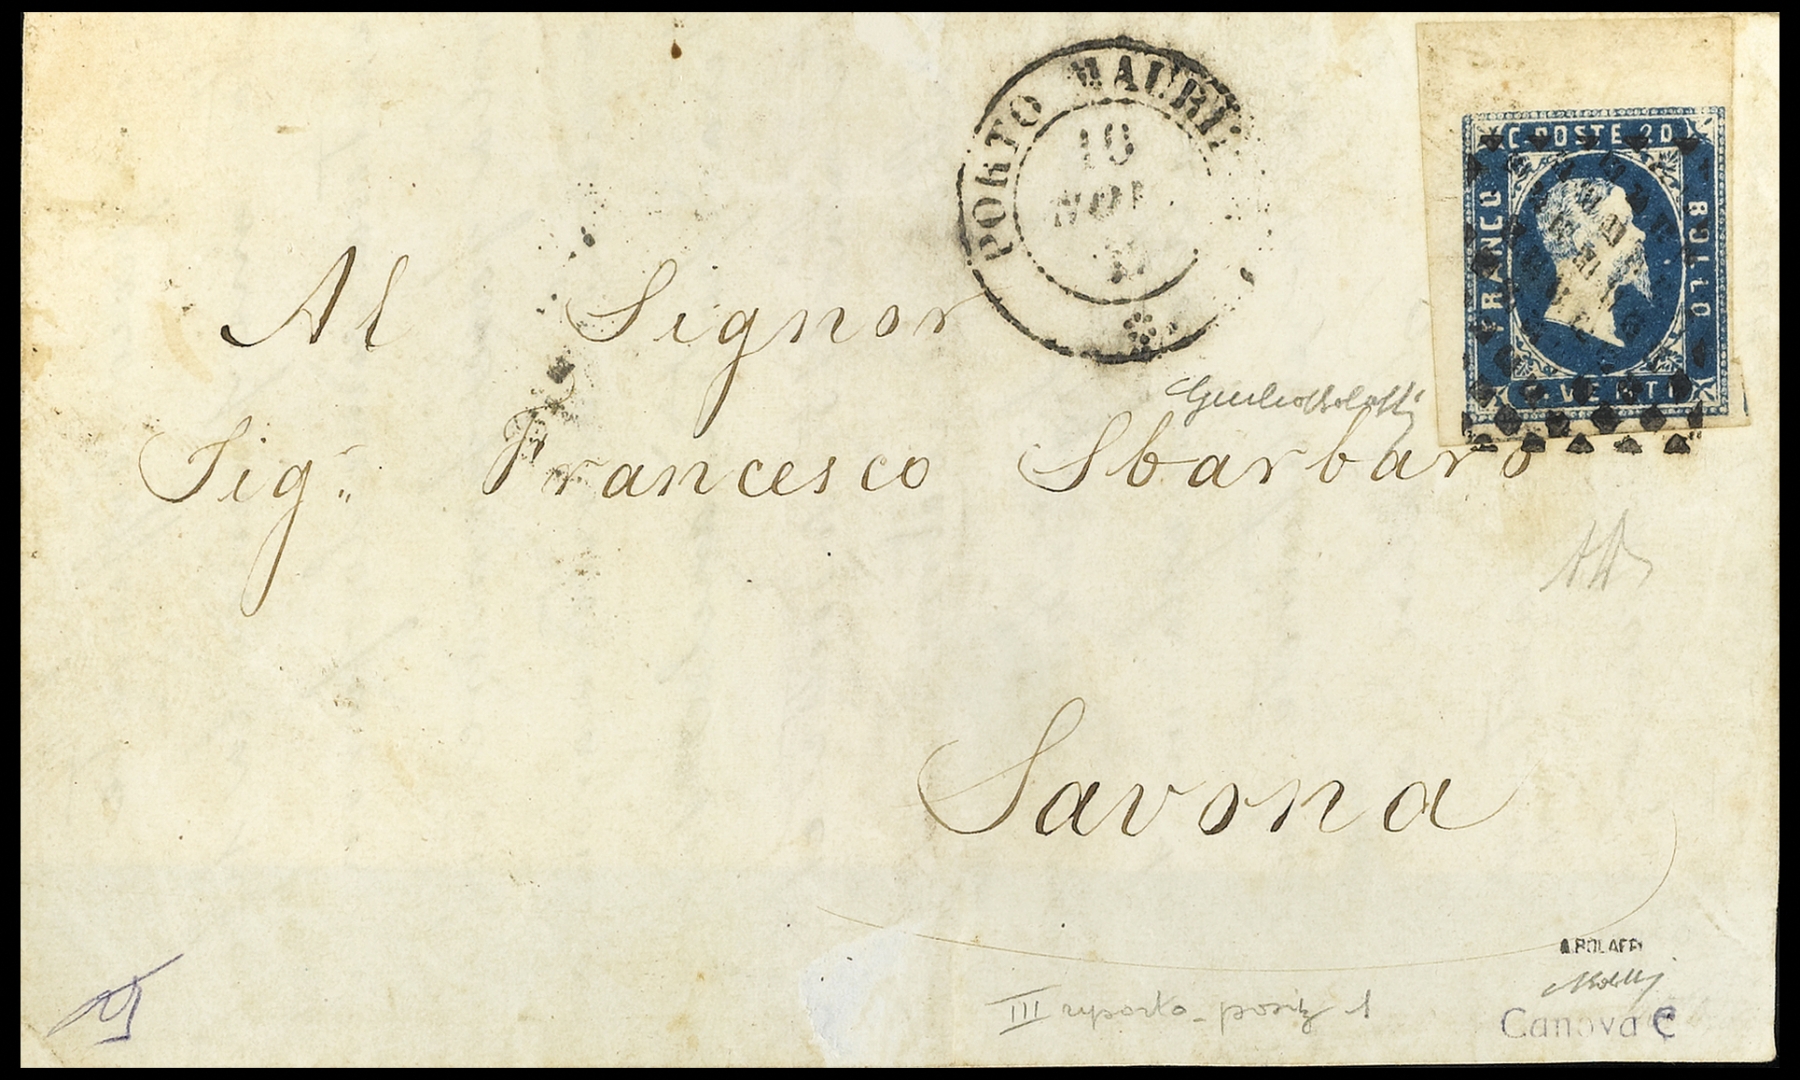 PORTO MAURI
18
NOV
C. POSTE 20
FRANCO
BOLLO
C. VENTI
Al Signor
Sigr. Francesco Sbarbaro
Giulio Bolaffi
Savona
A. BOLAFFI
III riporto - posiz 1
Canova C